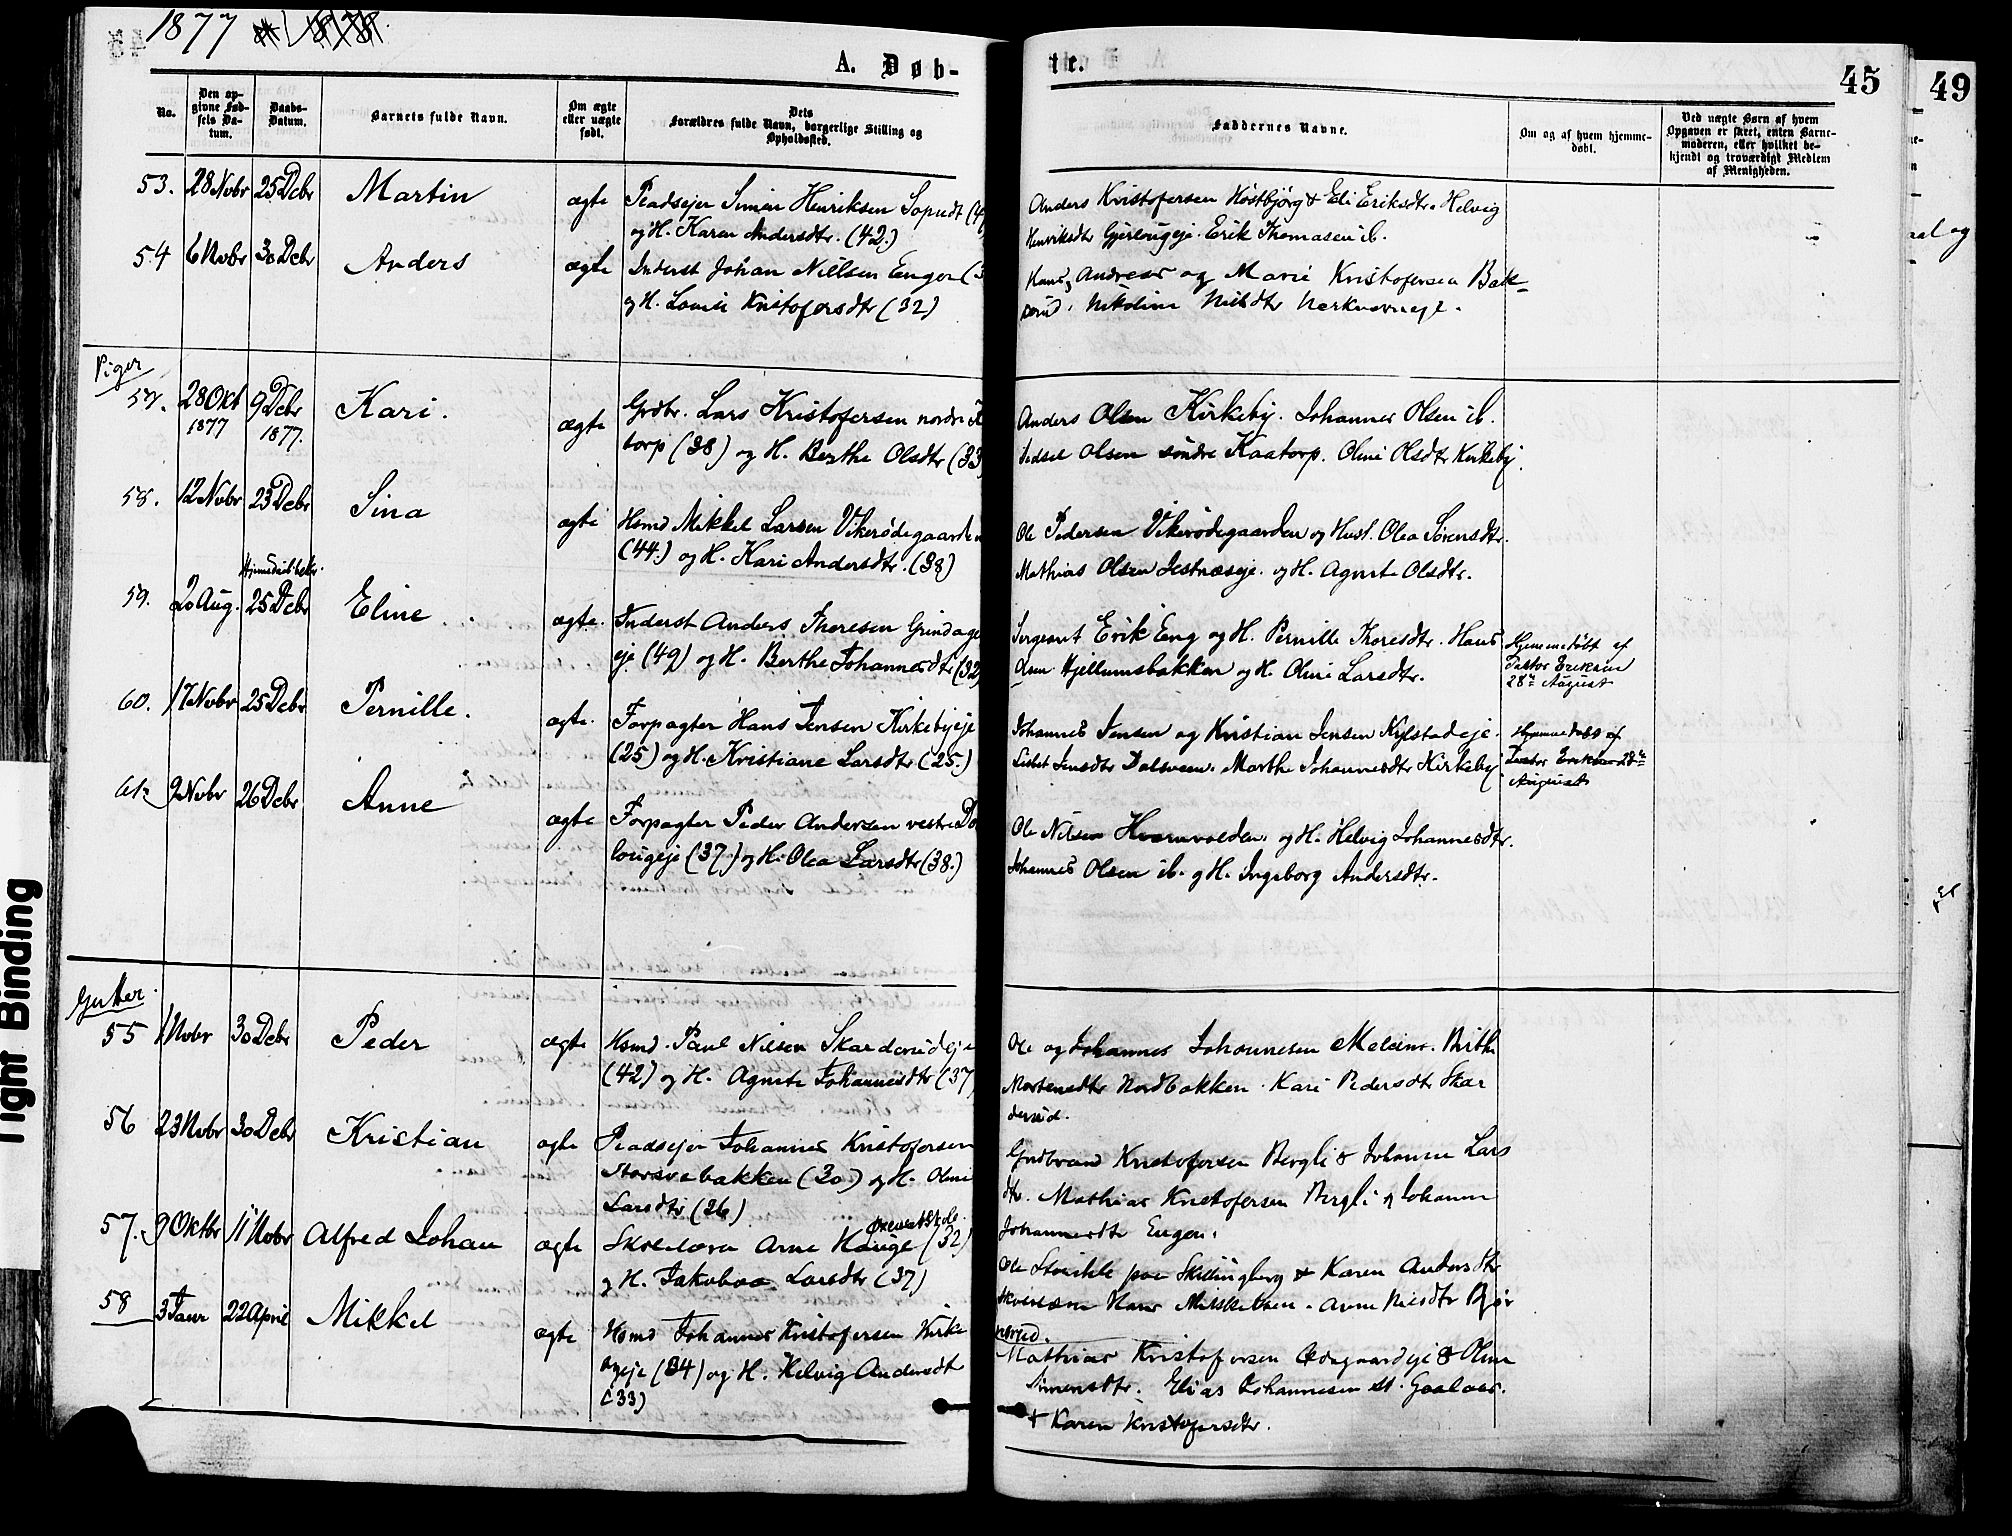 1877
A. Døb-
te.
45
49
No.
Den op-
givne Fød-
sels Da-
tum.
Daabs-
Datum.
Barnets fulde Navn.
Om ægte
eller uægte
født.
Dets
Forældres fulde Navn, borgerlige Stilling og
Opholdssted.
Faddernes Navne.
Om og af hvem hjemme-
døbt.
Ved uægte Børn af hvem
Opgaven er skeet, enten Barne-
moderen, eller hvilket be-
kjendt og troværdigt Medlem
af Menigheden.
53. 28 Novbr 25 Debr Martin ægte Pladsejer Simen Henriksen
og H. Karen Andersdtr. (42.)
Anders Kristofersen Høstbjørg & Eli Eriksdtr. Helvig
Henriksdtr Erik Thomasen ib.
54 6 Novbr 30 Debr Anders ægte Inderst Johan Nielsen Engen
og H. Lovise Kristofersdtr (32)
Hans, Andreas og Marie Kristofersen Bak-
Nikoline Nilsdtr
Piger
57. 28 Okt 9 Debr Kari. ægte Grdbr. Lars Kristofersen nordre
1877 1877.
torp (38) og H. Berthe Olsdtr (33
Anders Olsen Kirkeby. Johannes Olsen ib.
Sidsel Olsen søndre Kaatorp. Oline Olsdtr Kirkeby.
58. 12 Novbr 23 Debr Sina ægte Hsmd Mikkel Larsen Vikerødegaarden
(44.) og H. Kari Andersdtr. (38)
Ole Pedersen Vikerødegaarden og Hust. Olea Sørensdtr.
Mathias Olsen og H. Agnete Olsdtr.
59. 20 Aug. 25 Debr Eline ægte. Inderst Anders Thoresen
eje (49) og H. Berthe Johannesdtr (32)
Sergeant Erik Eng og H. Pernille Thoresdtr. Hans
Olsen Hjellumsbakken og H. Oline Larsdtr.
Hjemmedøbt af
Pastor Eriksen
28de August
60. 17 Novbr 25 Debr Pernille. ægte. Forpagter Hans Jensen Kirkebyeje
(25) og H. Kristiane Larsdtr (25.)
Johannes Jensen og Kristian Jensen Kylstadeje.
Lisbet Jensdtr Dalsveen. Marthe Johannesdtr Kirkeby
Hjemmedøbt af
Pastor Eriksen 28de
August
61. 9 Novbr 26 Debr Anne ægte Forpagter Peder Andersen vestre
(37.) og H. Olea Larsdtr (38.)
Ole Nilsen Hvarnvolden. og H. Helvig Johannesdtr.
Johannes Olsen ib. og H. Ingeborg Andersdtr.
Gutter.
55 1 Novbr 30 Debr Peder ægte Hsmd. Paul Nilsen Skarderudeje
(42) og H. Agnete Johannesdtr (37
Ole og Johannes Johannesen Brithe
Mortensdtr Nordbakken. Kari Pedersdtr Skar
derud.
56 23 Novbr 30 Debr Kristian ægte Pladsejer Johannes Kristofersen
(30) og H. Oline
Larsdtr (26)
Gudbrand Kristofersen Bergli & Johanne Lars
dtr. Mathias Kristofersen Bergli og Johanne
Johannesdtr Engen.
57. 9 Oktbr 11 Novbr Alfred Johan ægte Skolelærer Arne Hauge (32)
og H. Jakobea Larsdtr (37)
Ole paa Skillingberg & Karen Andersdtr
Skolelærer Hans Mikkelsen. Anne Nilsdtr
58 3 Janr 22 April Mikkel ægte Hsmd Johannes Kristofersen Kirke
byeje (34) og H. Helvig Andersdtr
(33)
Mathias Kristofersen Ødegaardeje & Oline
Simensdtr. Elias Johannesen
& Karen Kristofersdtr.
Tight Binding